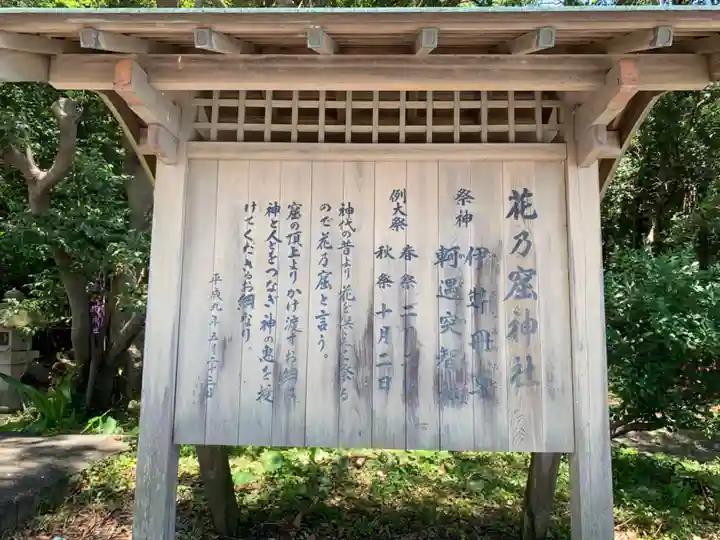 花乃窟神社
祭神
伊弉冊尊
軻遇突智
例大祭
春祭 二月二
秋祭 十月二日
神代の昔より花を供え祭る
ので花乃窟と言う。
窟の頂上よりかけ渡すお綱は
神と人とをつなぎ神の恵を授
けてくださるお綱なり。
平成九年五月二十三日